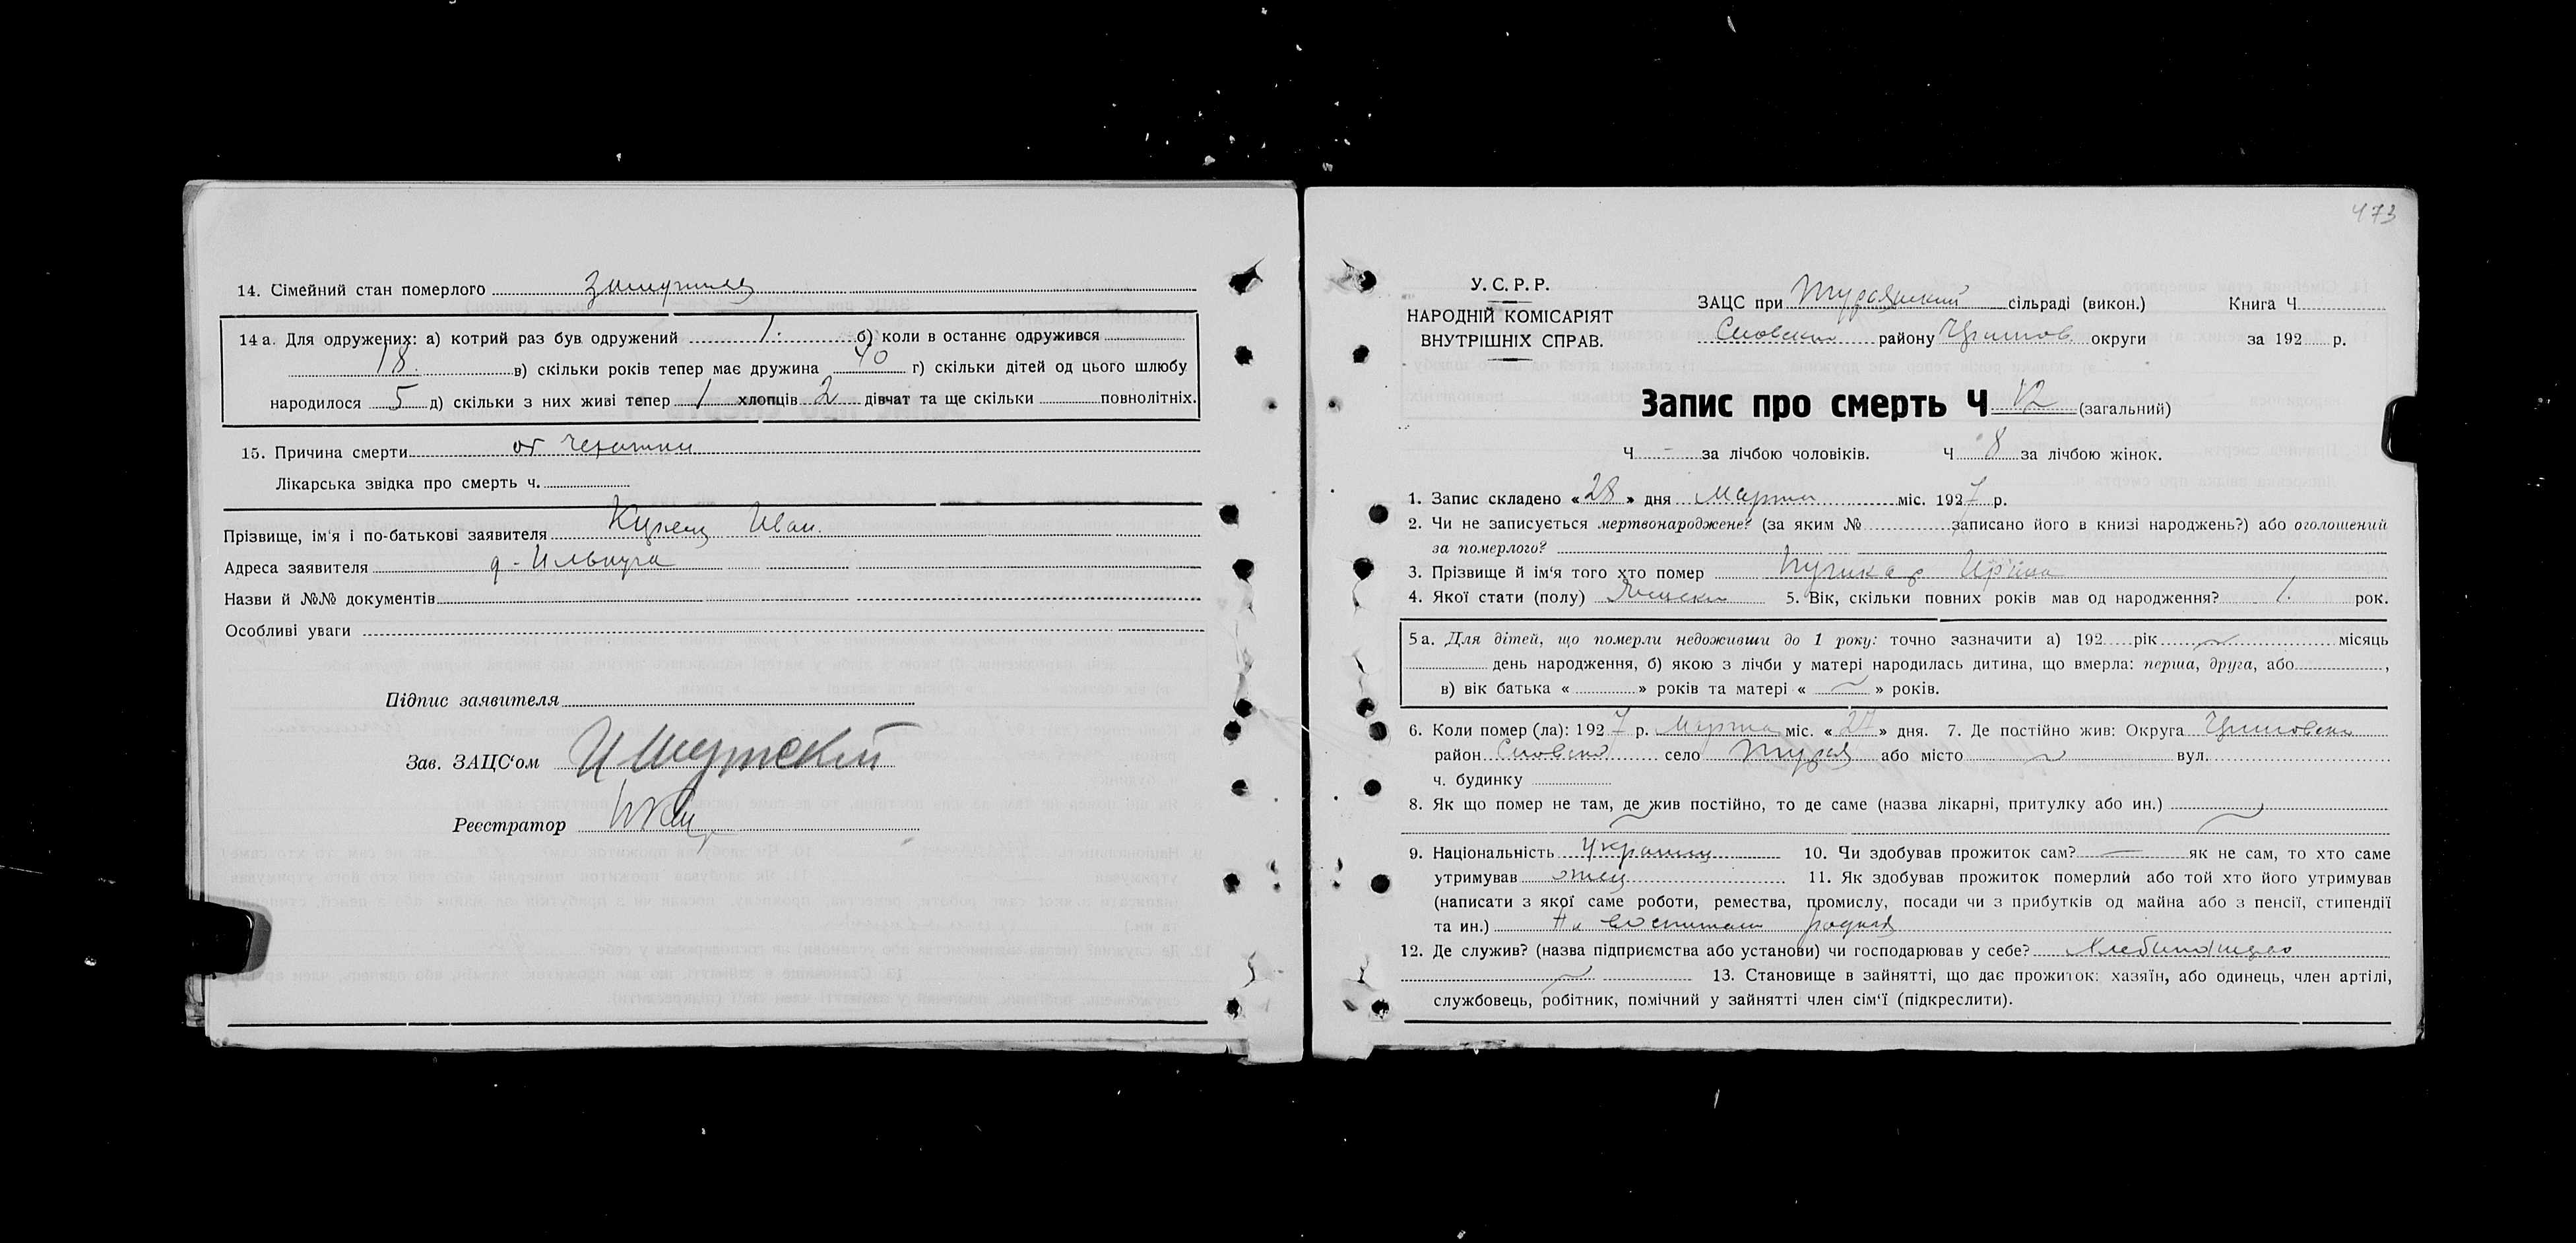 14. Сімейний стан померлого
14 а. Для одружених: а) котрий раз був одружений 1. б) коли в останнє одружився
18. в) скільки років тепер має дружина 40 г) скільки дітей од цього шлюбу
народилося 5 д) скільки з них живі тепер 1 хлопців 2 дівчат та ще скільки повнолітніх.
15. Причина смерти от чехотки
Лікарська звідка про смерть ч.
Прізвище, ім'я і по-батькові заявителя Иван.
Адреса заявителя
Назви й №№ документів
Особливі уваги
Підпис заявителя
Зав. ЗАЦС'ом
Реєстратор
473
У. С. Р. Р.
НАРОДНІЙ КОМІСАРІЯТ
ВНУТРІШНІХ СПРАВ.
ЗАЦС при сільраді (викон.) Книга Ч.
Сновски району округи за 192 р.
Запис про смерть Ч 12 (загальний)
Ч - за лічбою чоловіків. Ч 8 за лічбою жінок.
1. Запис складено «28» дня Марта міс. 1927 р.
2. Чи не записується мертвонароджене? (за яким № записано його в книзі народжень?) або оголошений
за померлого?
3. Прізвище й ім'я того хто помер
4. Якої стати (полу) Женски 5. Вік, скільки повних років мав од народження? 1. рок.
5 а. Для дітей, що померли недоживши до 1 року: точно зазначити а) 192 рік місяць
день народження, б) якою з лічби у матері народилась дитина, що вмерла: перша, друга, або ,
в) вік батька « » років та матері « » років.
6. Коли помер (ла): 1927 р. Марта міс. «27» дня. 7. Де постійно жив: Округа
район Сновско село Туря або місто вул.
ч. будинку
8. Як що помер не там, де жив постійно, то де саме (назва лікарні, притулку або ин.)
9. Національність Украинец 10. Чи здобував прожиток сам? — як не сам, то хто саме
утримував отец 11. Як здобував прожиток померлий або той хто його утримував
(написати з якої саме роботи, ремества, промислу, посади чи з прибутків од майна або з пенсії, стипендії
та ин.)
12. Де служив? (назва підприємства або установи) чи господарював у себе?
13. Становище в зайнятті, що дає прожиток: хазяїн, або одинець, член артілі,
службовець, робітник, помічний у зайнятті член сім'ї (підкреслити).